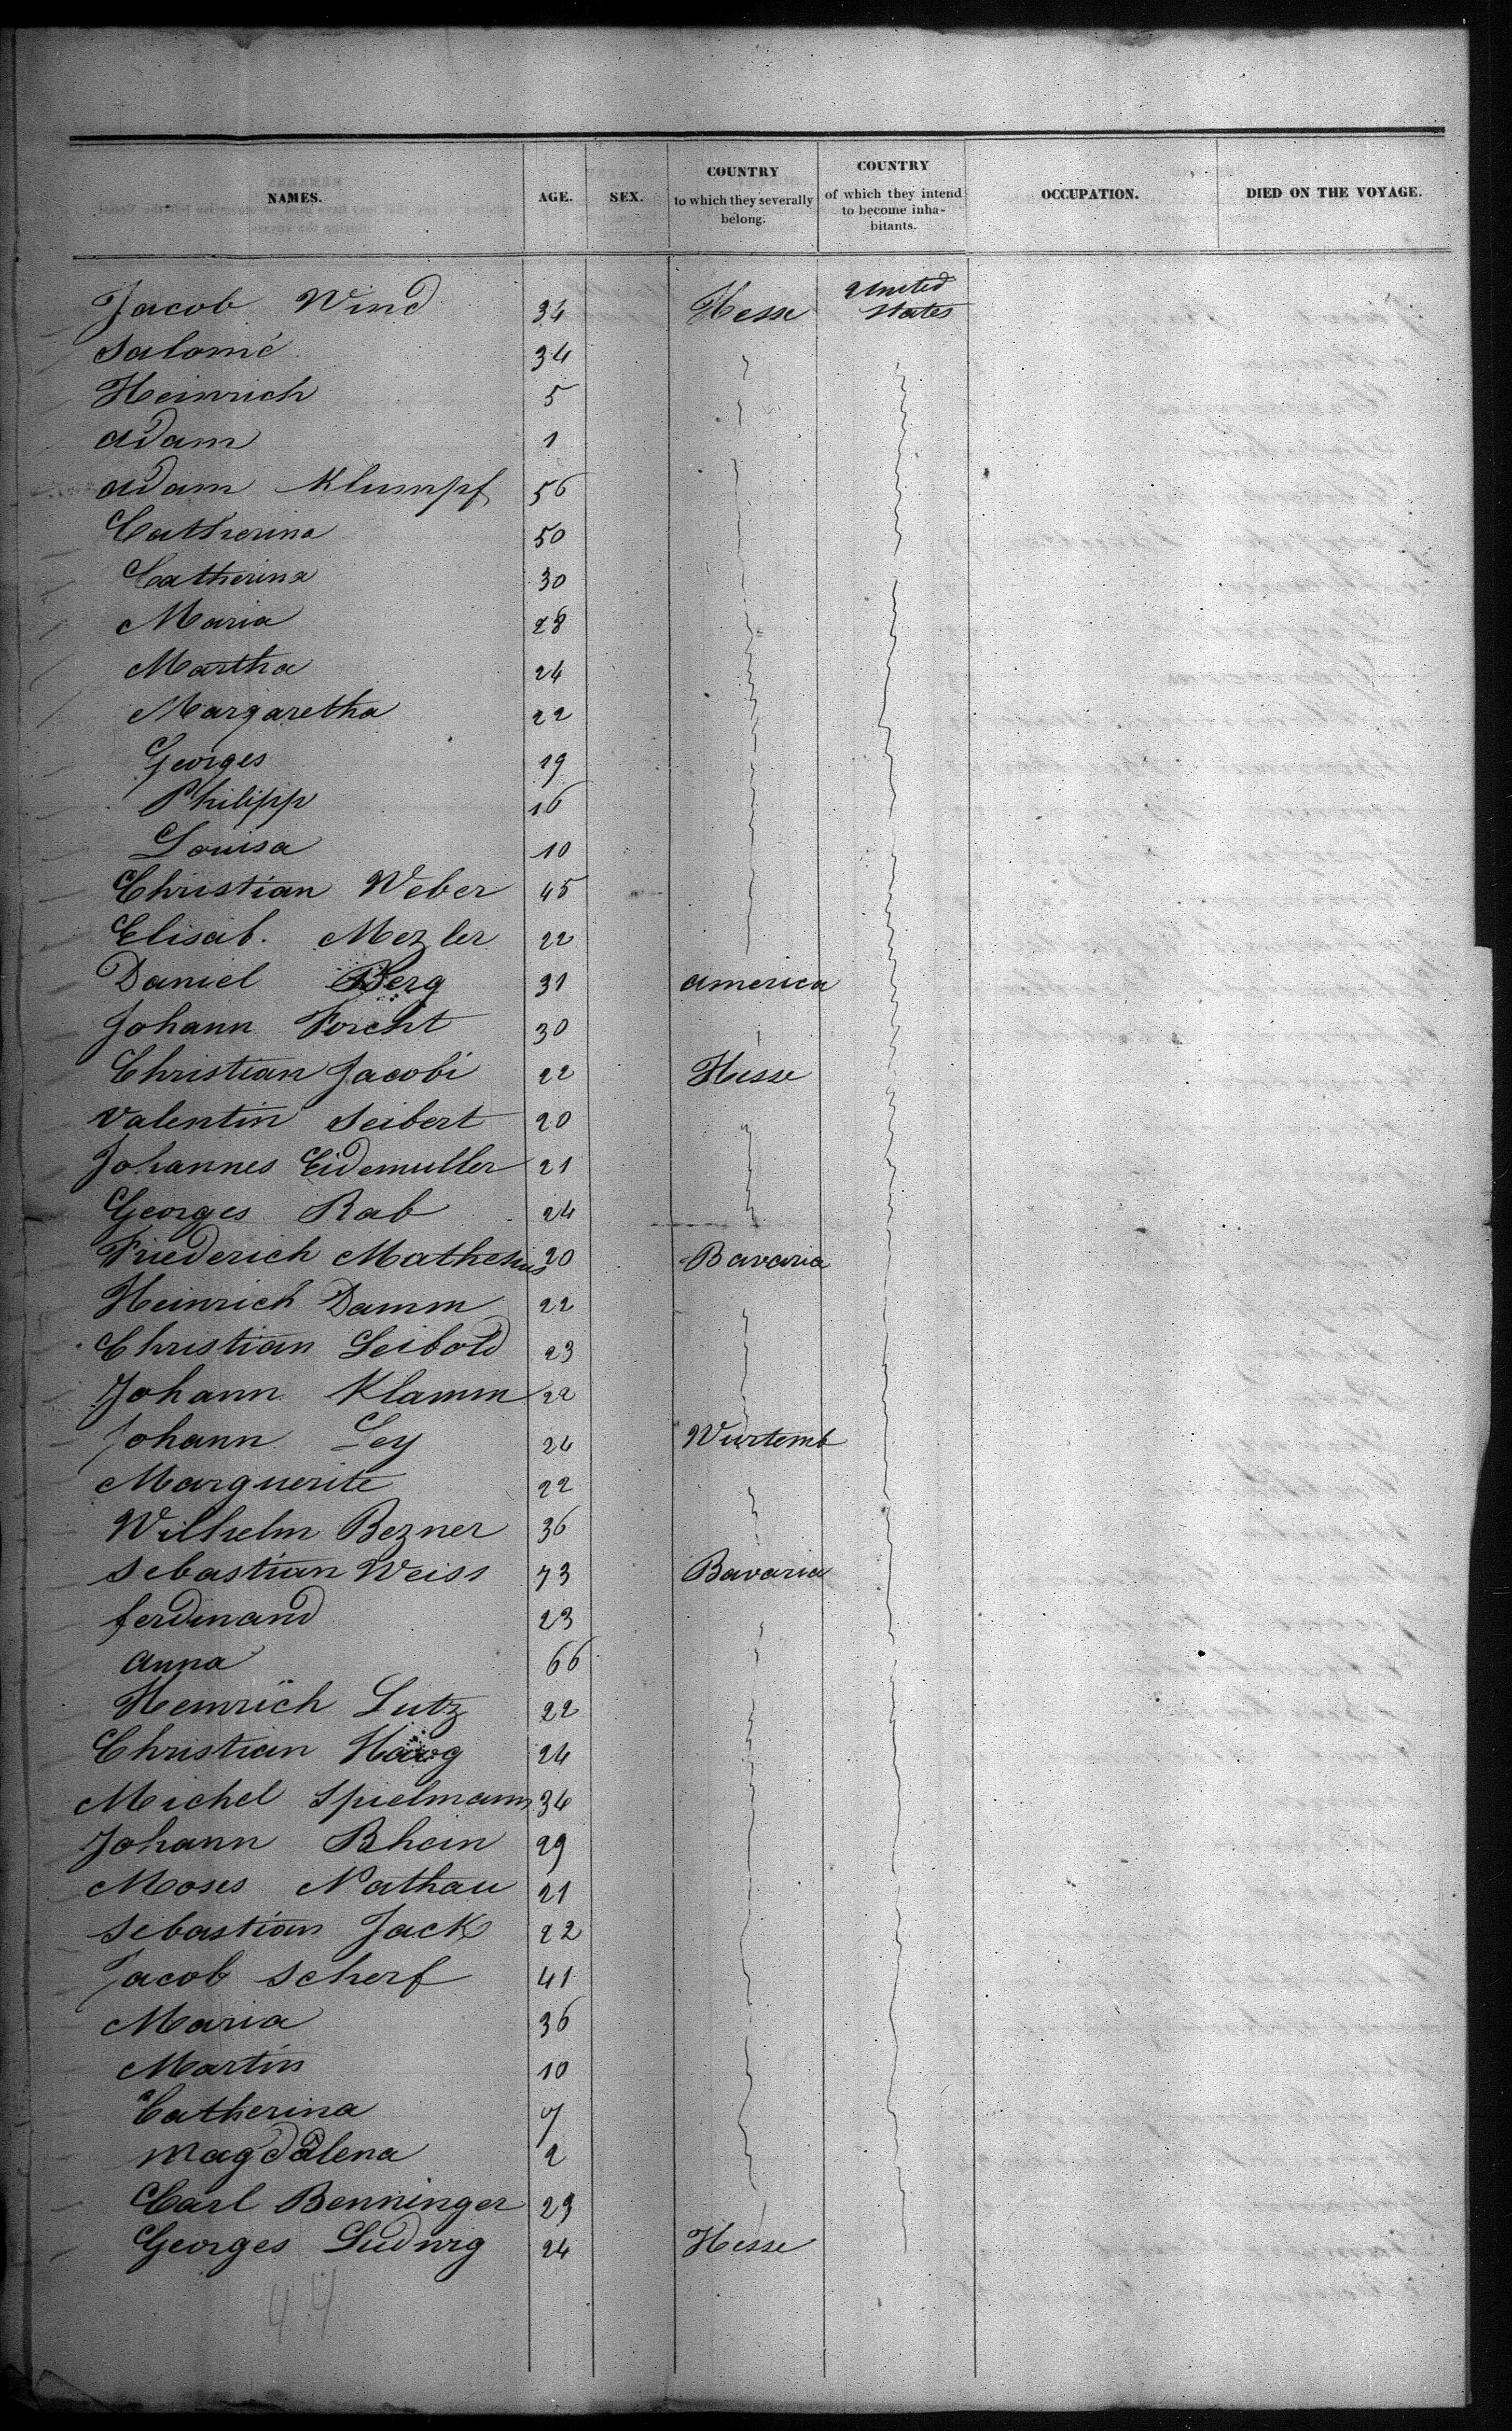 NAMES. AGE. SEX. COUNTRY to which they severally belong. COUNTRY of which they intend to become inhabitants. OCCUPATION. DIED ON THE VOYAGE.
Jacob Wind 34 Hesse United States
Salomé 34
Heinrich 5
Adam 1
Adam Klumpf 56
Catherina 50
Catherina 30
Maria 28
Martha 24
Margaretha 22
Georges 19
Philipp 16
Louisa 10
Christian Weber 45
Elisab. Mezler 22
Daniel Berg 31 America
Johann Forcht 30
Christian Jacobi 22 Hesse
Valentin Seibert 20
Johannes Eidemuller 21
Georges Rab 24
Friederich Mathesius 20 Bavaria
Heinrich Damm 22
Christian Leibold 23
Johann Klamm 22
Johann Ley 24 Wurtemb
Marguerite 22
Wilhelm Bezner 36
Sebastian Weiss 73 Bavaria
ferdinand 23
Anna 66
Heinrich Lutz 22
Christian 24
Michel Spielmann 34
Johann Rhein 29
Moses Nathan 21
Sebastian Jack 22
Jacob Scherf 41
Maria 36
Martin 10
Catherina 7
Magdalena 2
Carl Benninger 23
Georges Ludwig 24 Hesse
44